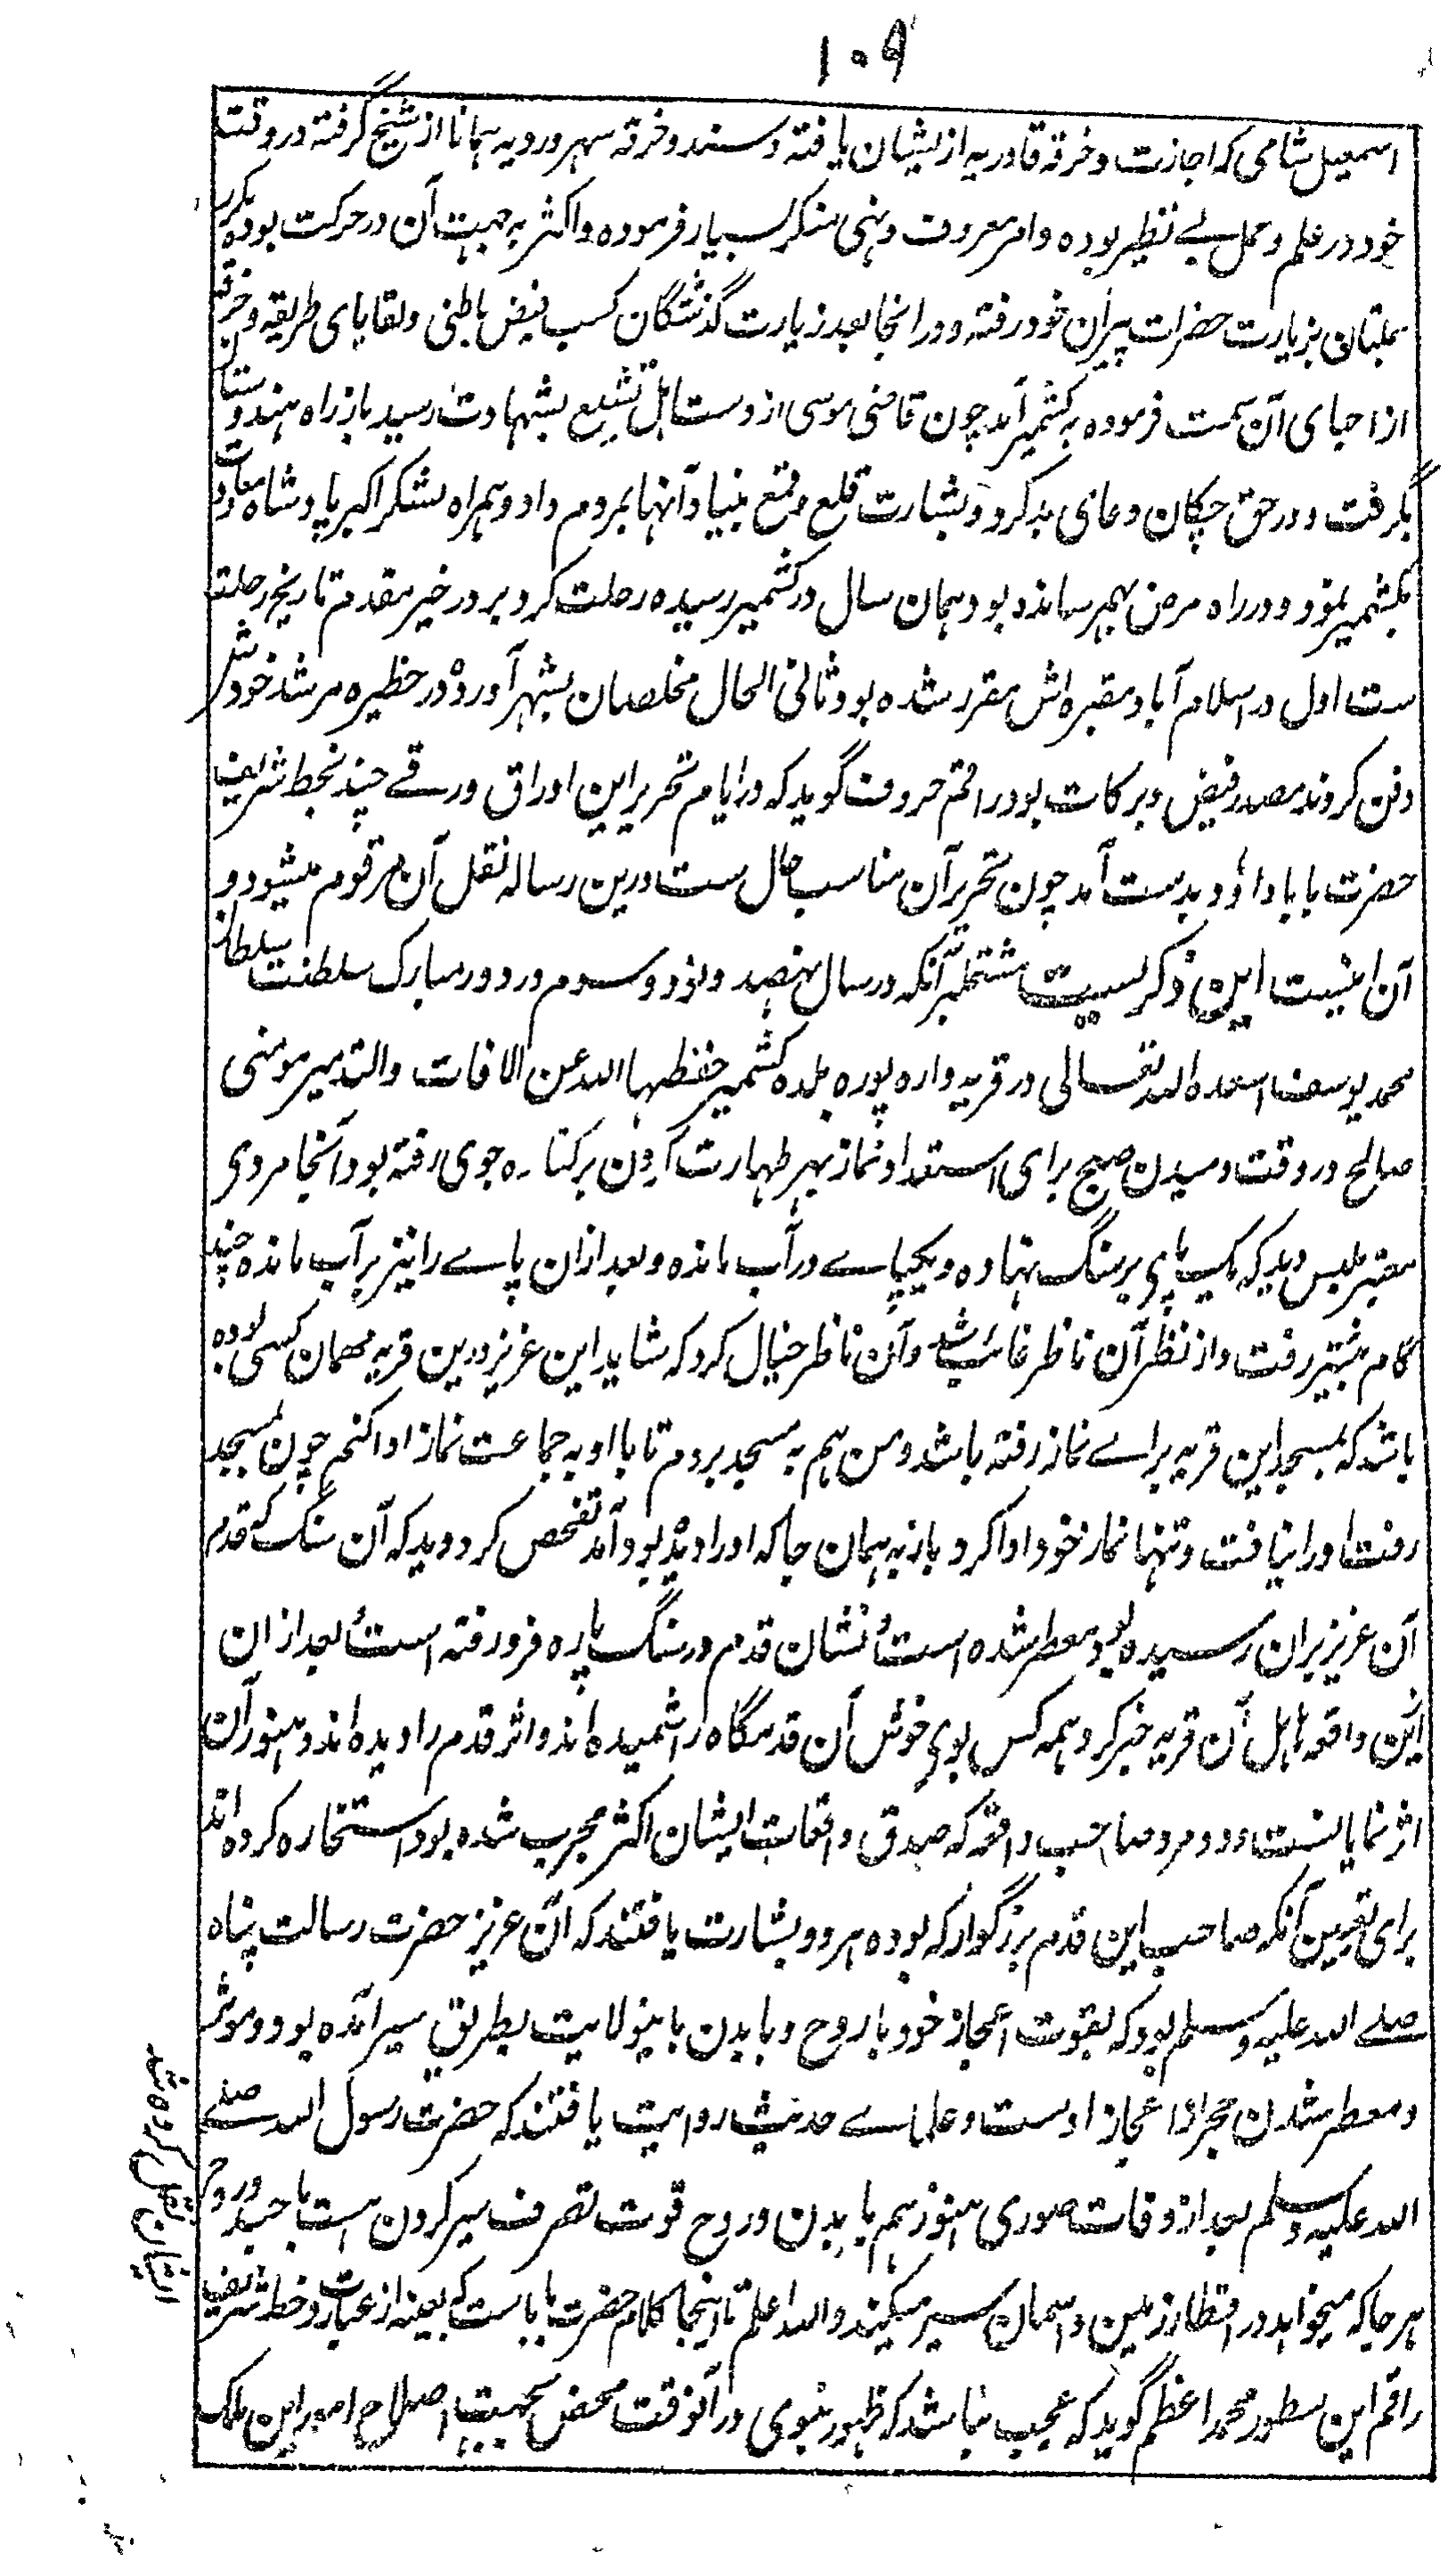 ۱۰۹
اسمعیل شامی که اجازت و خرقه قادریه از ایشان یافته و سند و خرقه سهروردیه همانا از شیخ گرفته در وقت
خود در علم و عمل بے نظیر بوده و امر معروف و نهی منکر بسیار فرموده و اکثر به جهت آن در حرکت بوده مکرر
بملتان بزیارت حضرات پیران خود رفته و در انجا بعد زیارت گذشتگان کسب فیض باطنی و لقایای طریقه و خرقه
از احیای آن سمت فرموده به کشمیر آمد چون قاضی موسی از دست اهل تشیع بشهادت رسید باز راه هندوستان
بگرفت و در حق چکان دعای بد کرد و بشارت قلع و قمع بنیاد آنها بمردم داد و همراه لشکر اکبر پادشاه معاودت
بکشمیر نمود و در راه مرض بهم رسانده بود همان سال در کشمیر رسیده رحلت کرد بر در خیر مقدم تاریخ رحلت
ست اول در اسلام آباد مقبره اش مقرر شده بود ثانی الحال مخلصان بشهر آورده در حظیره مرشد خودش
دفن کردند مصدر فیض و برکات بود راقم حروف گوید که در ایام تحریر این اوراق ورقے چند بخط شریف
حضرت بابا داؤد بدست آمد چون تحریر آن مناسب حال ست درین رساله نقل آن مرقوم میشود و
آن اینست این ذکریست مشتملبر آنکه در سال نهصد و نود و سوم در دور مبارک سلطنت سلطان
محمد یوسف اسعده الله تعالی در قریه واره پوره بلده کشمیر حفظها الله عن الافات والتدمیر مومنی
صالح در وقت دمیدن صبح برای استعداد نماز بهر طهارت کردن بر کناره جوی رفته بود آنجا مردی
معتبر ملبس دید که یک پای بر سنگ نهاده و یکپاے در آب مانده و بعد ازان پاے را نیز بر آب مانده چند
گام بیشتر رفت و از نظر آن ناظر غائب شد و آن ناظر خیال کرد که شاید این عزیز درین قریه مهمان کسی بوده
باشد که بمسجد این قریه براے نماز رفته باشد و من هم به مسجد بروم تا با او به جماعت نماز ادا کنم چون بمسجد
رفت او را نیافت و تنها نماز خود ادا کرد باز به همان جا که او را دیده بود آمد تفحص کرد و دید که آن سنگ که قدم
آن عزیز بران رسیده بود معطر شده است و نشان قدم در سنگ پاره فرو رفته است بعد ازان
این واقعه باهل آن قریه خبر کرد همه کس بوی خوش آن قدمگاه را شمیده اند و اثر قدم را دیده اند و هنوز آن
اثر نمایانست و دو مرد صاحب واقعه که صدق واقعات ایشان اکثر مجرب شده بود استخاره کرده اند
برای تعیین آنکه صاحب این قدم بزرگوار که بوده هر دو بشارت یافتند که آن عزیز حضرت رسالت پناه
صلے الله علیه وسلم بود که بقوت اعجاز خود با روح و با بدن باینولایت بطریق سیر آمده بود و موثر
و معطر شدن حجر از اعجاز اوست و علماے حدیث روایت یافتند که حضرت رسول الله صلے
الله علیه وسلم بعد از وفات صوری هنوز هم با بدن و روح قوت تصرف سیر کردن است با جسد و روح
هر جا که میخواهد در اقطار زمین و اسمان سیر میکنید و الله اعلم تا اینجا کلام حضرت باباست که بعینه از عبارت و خط شریف
راقم این سطور محمد اعظم گوید که عجب نباشد که ظهور نبوی در آنوقت محض بجهت اصلاح امور این ملک
ایشان نقل کرده شد